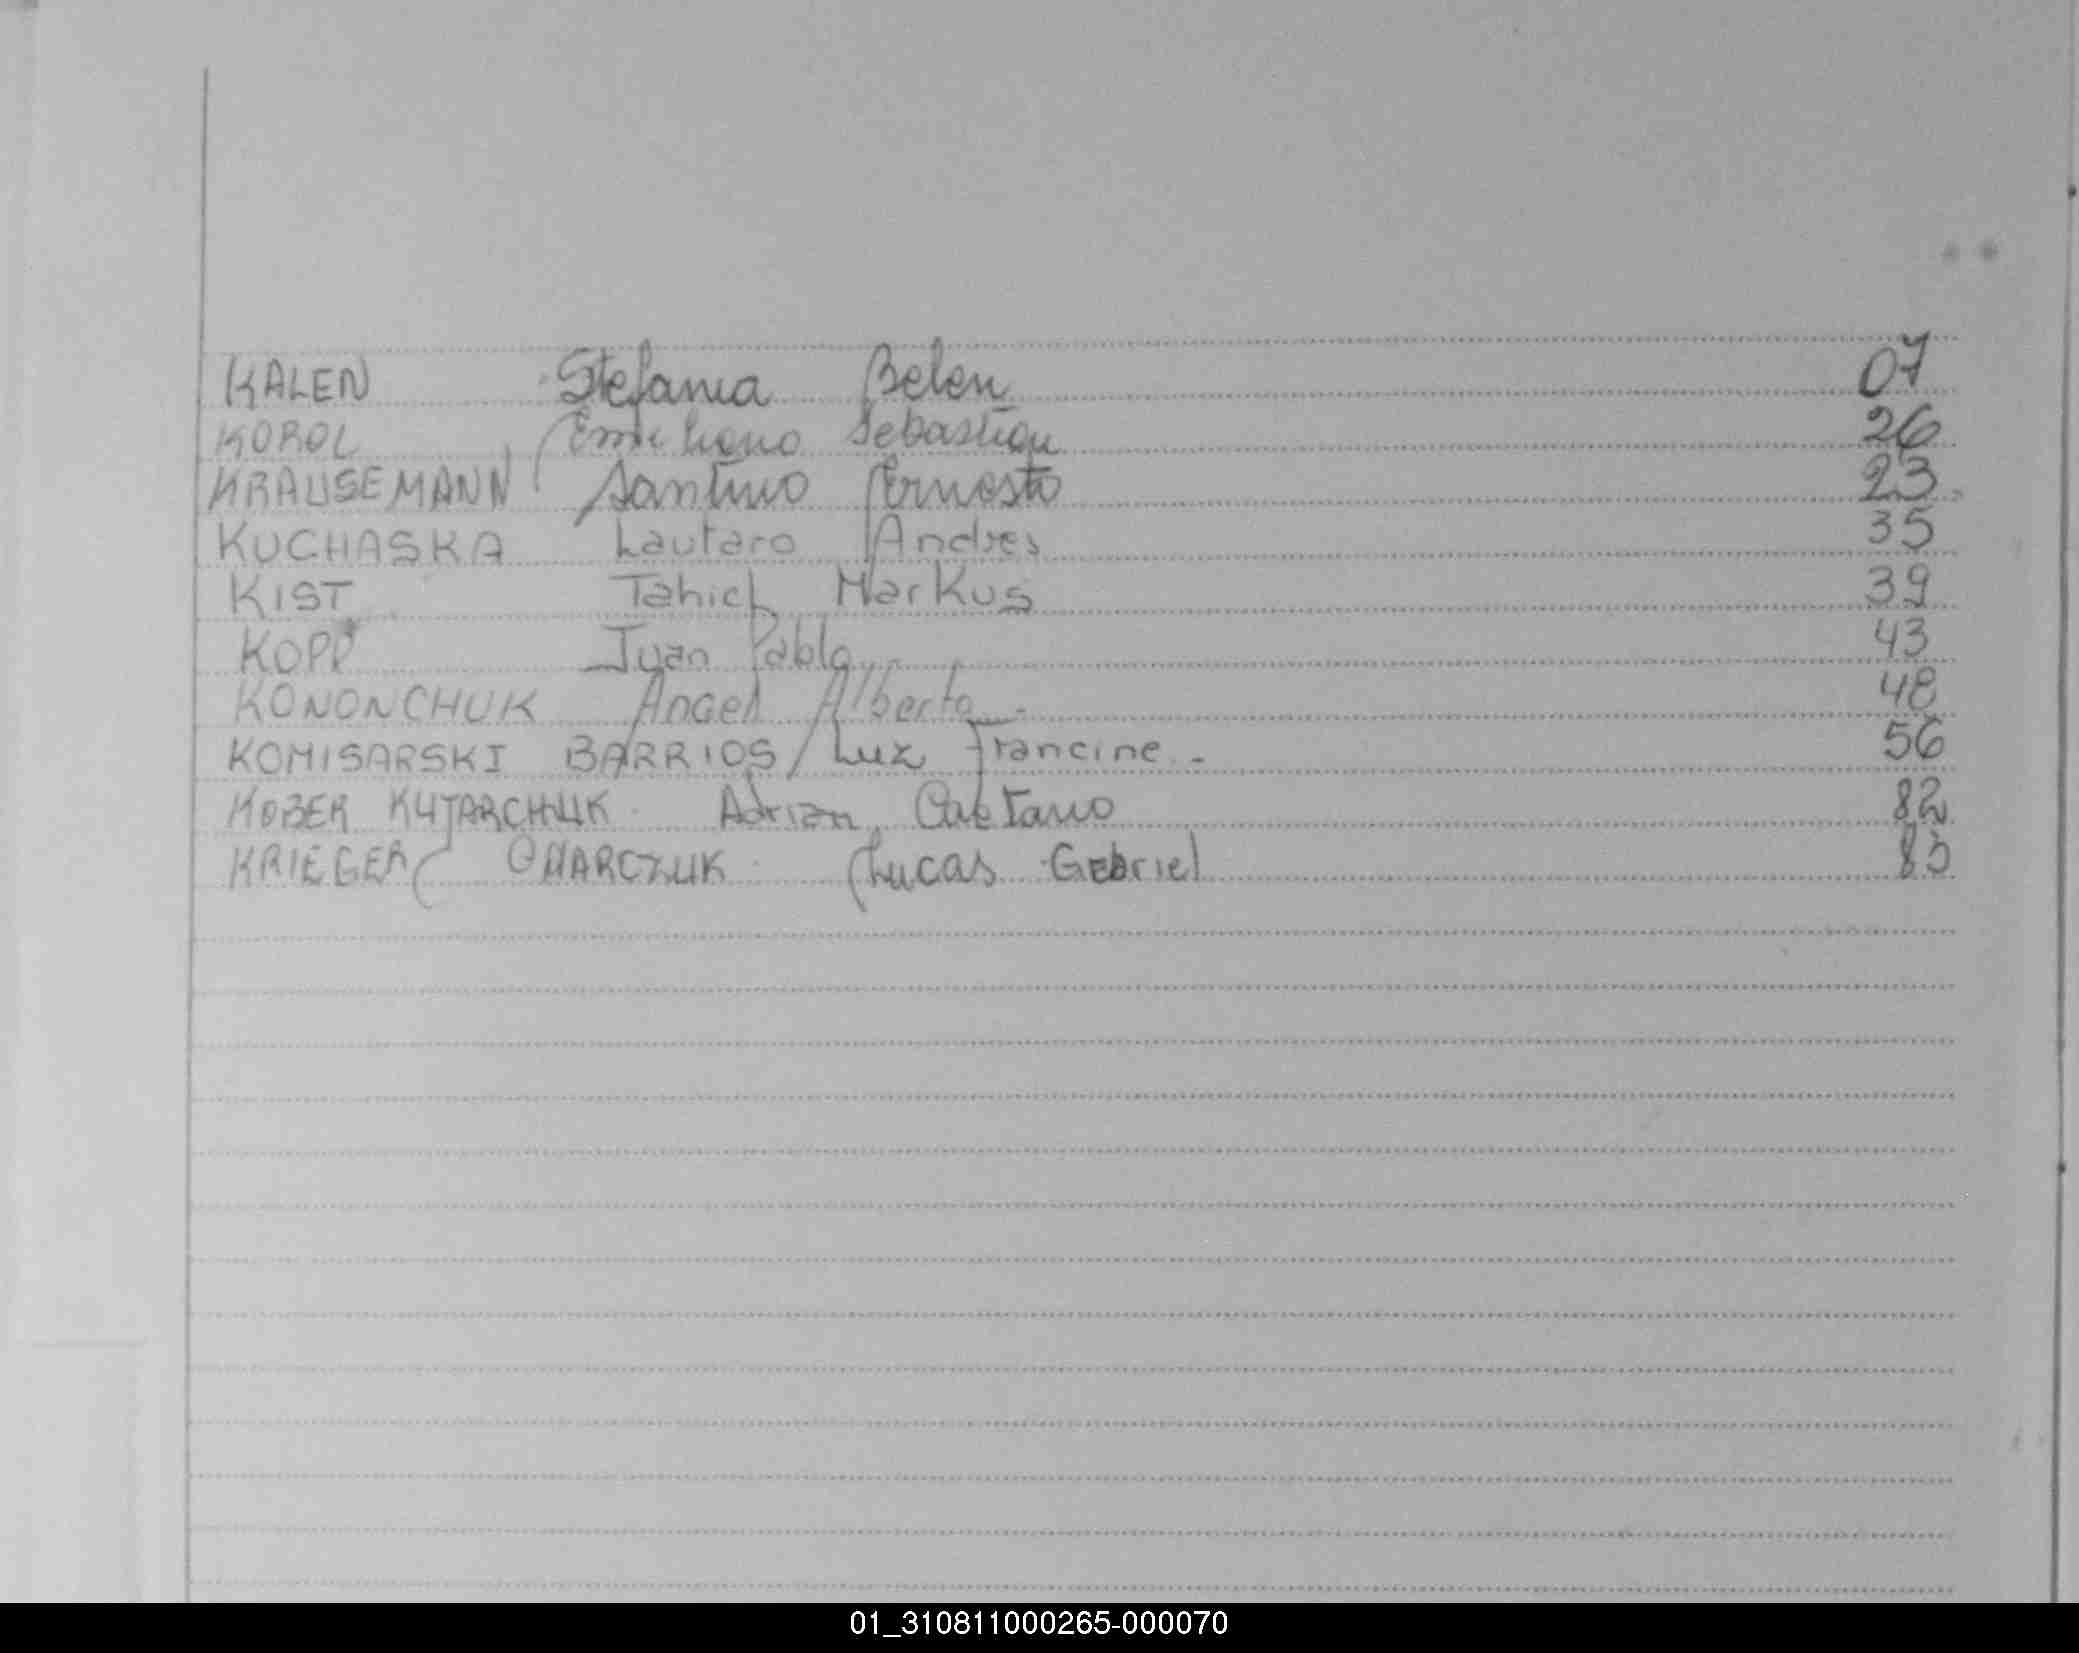 KALEN Stefania Belen 07
KOROL Emiliano Sebastian 26
KRAUSEMANN Santino Ernesto 23
KUCHASKA Lautaro Andres 35
KIST Tahich Markus 39
KOPP Juan Pablo 43
KONONCHUK Angel Alberto - 48
KOMISARSKI BARRIOS / Luz Francine - 56
KOBER KUJARCHUK Adrian Caetano 82
KRIEGER OMARCZUK Lucas Gabriel
01_310811000265-000070